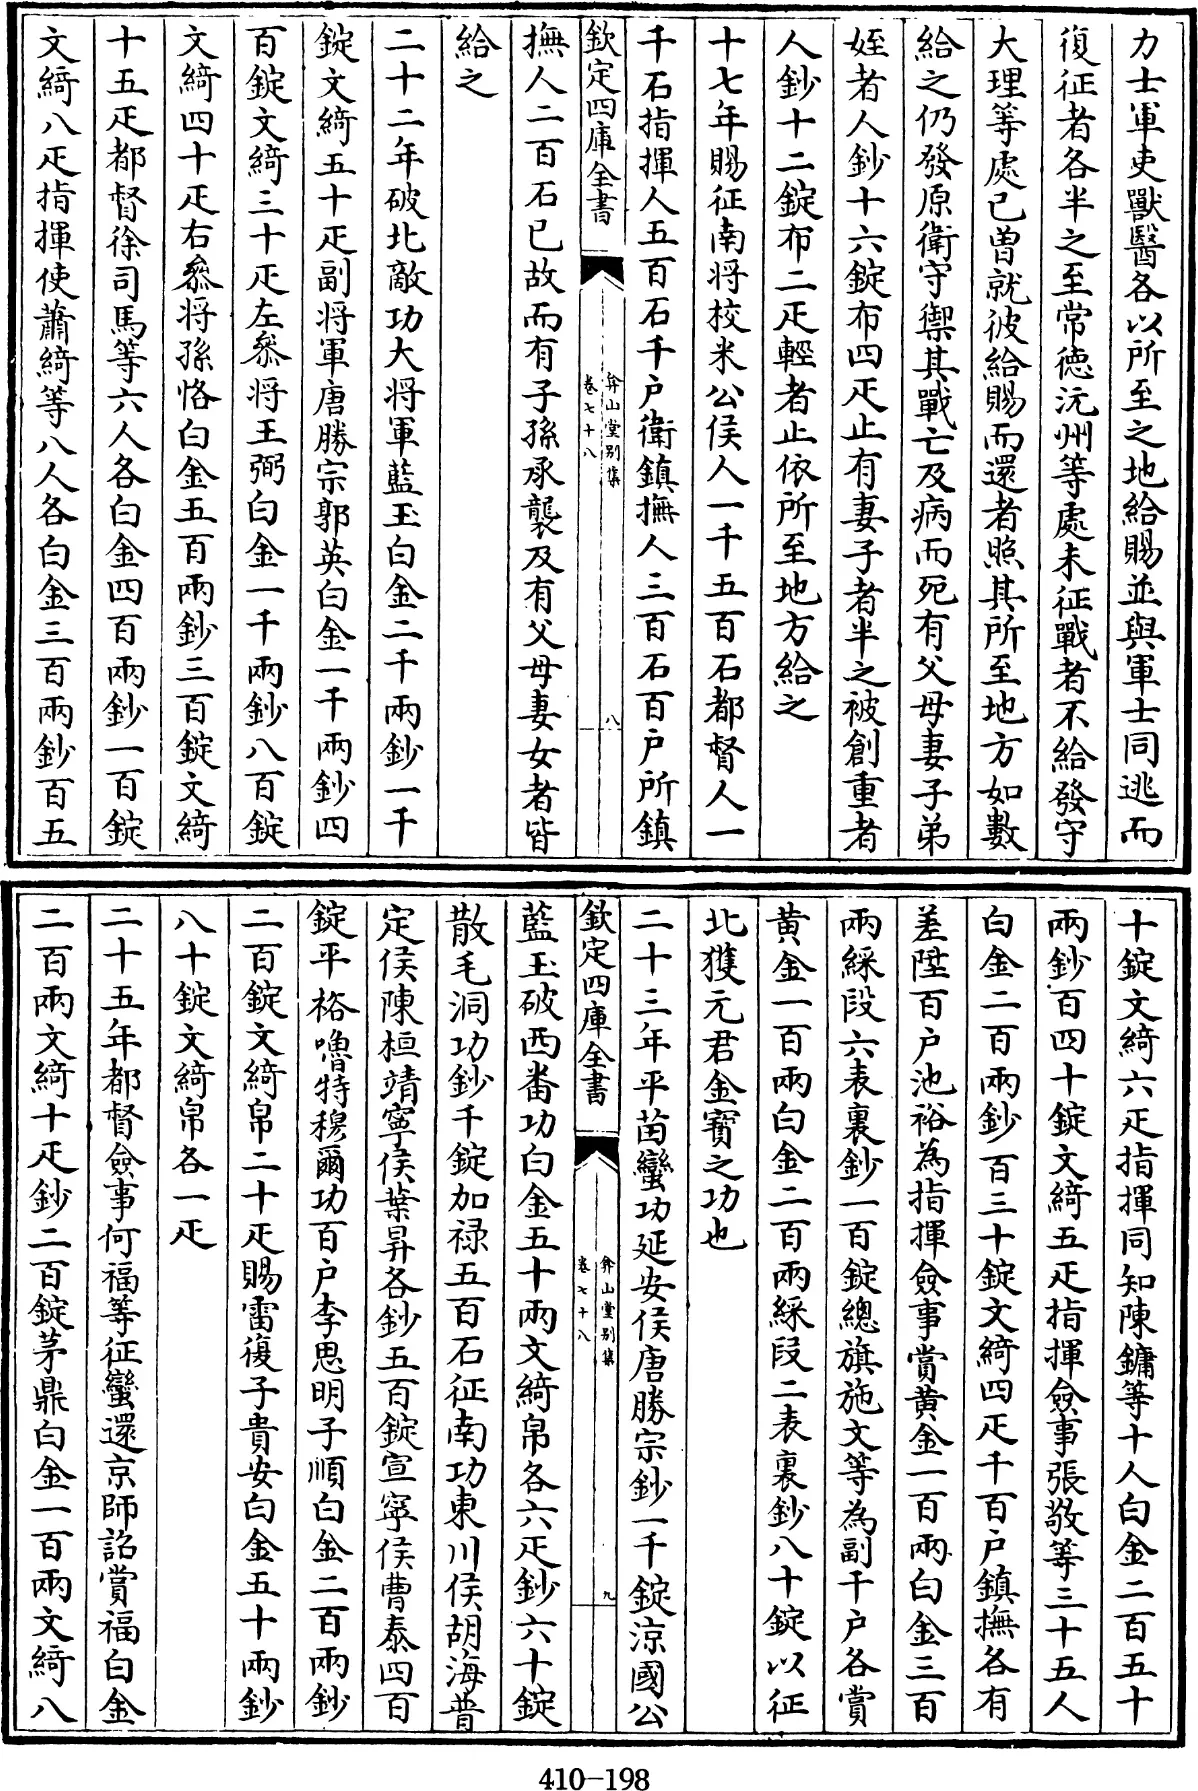 力士軍吏獸醫各以所至之地給賜並與軍士同逃而
復征者各半之至常德沅州等處未征戰者不給發守
大理等處已曽就彼給賜而還者照其所至地方如數
給之仍發原衛守禦其戰亡及病而死有父母妻子弟
姪者人鈔十六錠布四疋止有妻子者半之被創重者
人鈔十二錠布二疋輕者止依所至地方給之
十七年賜征南将校米公侯人一千五百石都督人一
千石指揮人五百石千户衛鎮撫人三百石百户所鎮
欽定四庫全書
弇山堂别集
卷七十八
八
撫人二百石已故而有子孫承襲及有父母妻女者皆
給之
二十二年破北敵功大将軍藍玉白金二千兩鈔一千
錠文綺五十疋副将軍唐勝宗郭英白金一千兩鈔四
百錠文綺三十疋左叅将王弼白金一千兩鈔八百錠
文綺四十疋右叅将孫恪白金五百兩鈔三百錠文綺
十五疋都督徐司馬等六人各白金四百兩鈔一百錠
文綺八疋指揮使蕭綺等八人各白金三百兩鈔百五
十錠文綺六疋指揮同知陳鏞等十人白金二百五十
兩鈔百四十錠文綺五疋指揮僉事張敬等三十五人
白金二百兩鈔百三十錠文綺四疋千百户鎮撫各有
差陞百户池裕為指揮僉事賞黄金一百兩白金三百
兩綵段六表裏鈔一百錠總旗施文等為副千户各賞
黄金一百兩白金二百兩綵段二表裏鈔八十錠以征
北獲元君金寳之功也
二十三年平苗蠻功延安侯唐勝宗鈔一千錠涼國公
欽定四庫全書
弇山堂别集
卷七十八
九
藍玉破西番功白金五十兩文綺帛各六疋鈔六十錠
散毛洞功鈔千錠加禄五百石征南功東川侯胡海普
定侯陳桓靖寧侯葉昇各鈔五百錠宣寧侯曹泰四百
錠平格嚕特穆爾功百户李思明子順白金二百兩鈔
二百錠文綺帛二十疋賜雷復子貴安白金五十兩鈔
八十錠文綺帛各一疋
二十五年都督僉事何福等征蠻還京師詔賞福白金
二百兩文綺十疋鈔二百錠茅鼎白金一百兩文綺八
410-198